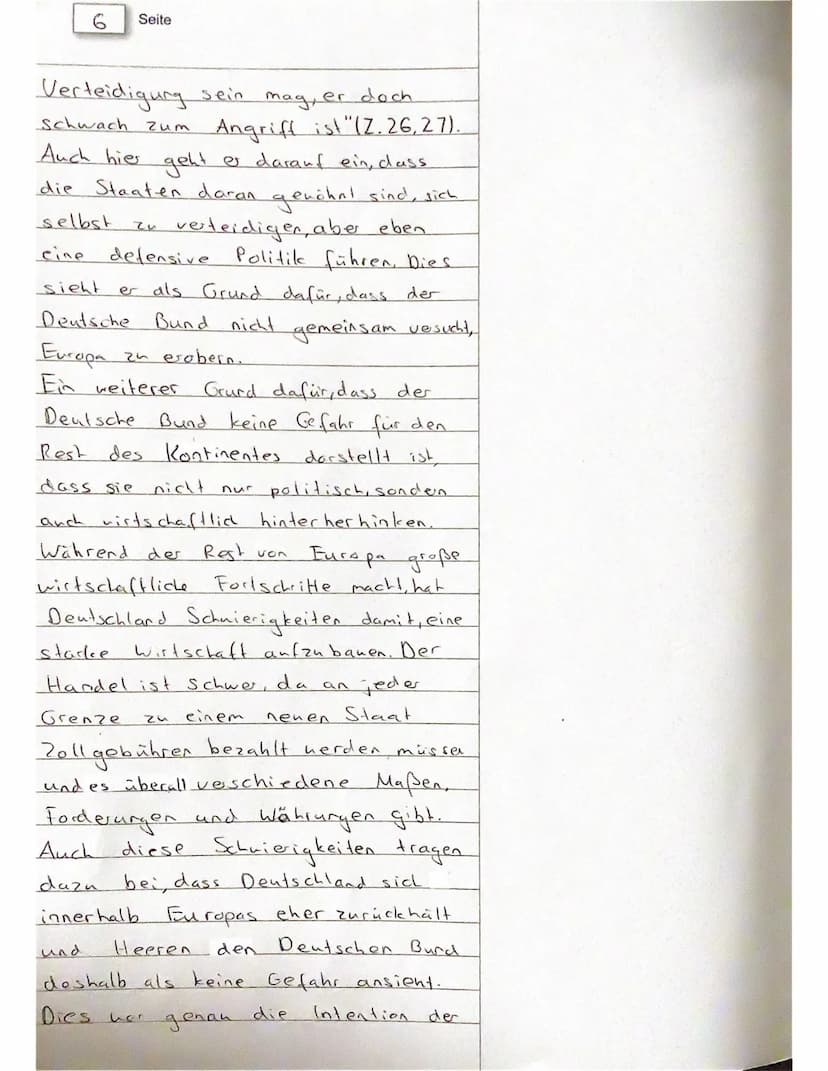 6 Seite
Verteidigung sein mag, er doch
schwach zum Angriff ist" (Z. 26, 27).
Auch hier geht er darauf ein, dass
die Staaten daran gewöhnt sind, sich
selbst zu verteidigen, aber eben
eine defensive Politik führen. Dies
sieht er als Grund dafür, dass der
Deutsche Bund nicht gemeinsam vesucht,
Europa zu erobern.
Ein weiterer Grund dafür, dass der
Deutsche Bund keine Gefahr für den
Rest des Kontinentes darstellt ist,
dass sie nicht nur politisch, sondern
auch wirtschaftlich hinterherhinken.
Während der Rest von Europa große
wirtschaftliche Fortschritte macht, hat
Deutschland Schwierigkeiten damit, eine
starke Wirtschaft aufzubauen. Der
Handel ist schwer, da an jeder
Grenze zu einem neuen Staat
Zollgebühren bezahlt werden müssen
und es überall verschiedene Maßen,
Forderungen und Währungen gibt.
Auch diese Schwierigkeiten tragen
dazu bei, dass Deutschland sich
innerhalb Europas eher zurückhält
und Heeren den Deutschen Bund
deshalb als keine Gefahr ansieht.
Dies war genau die Intention der